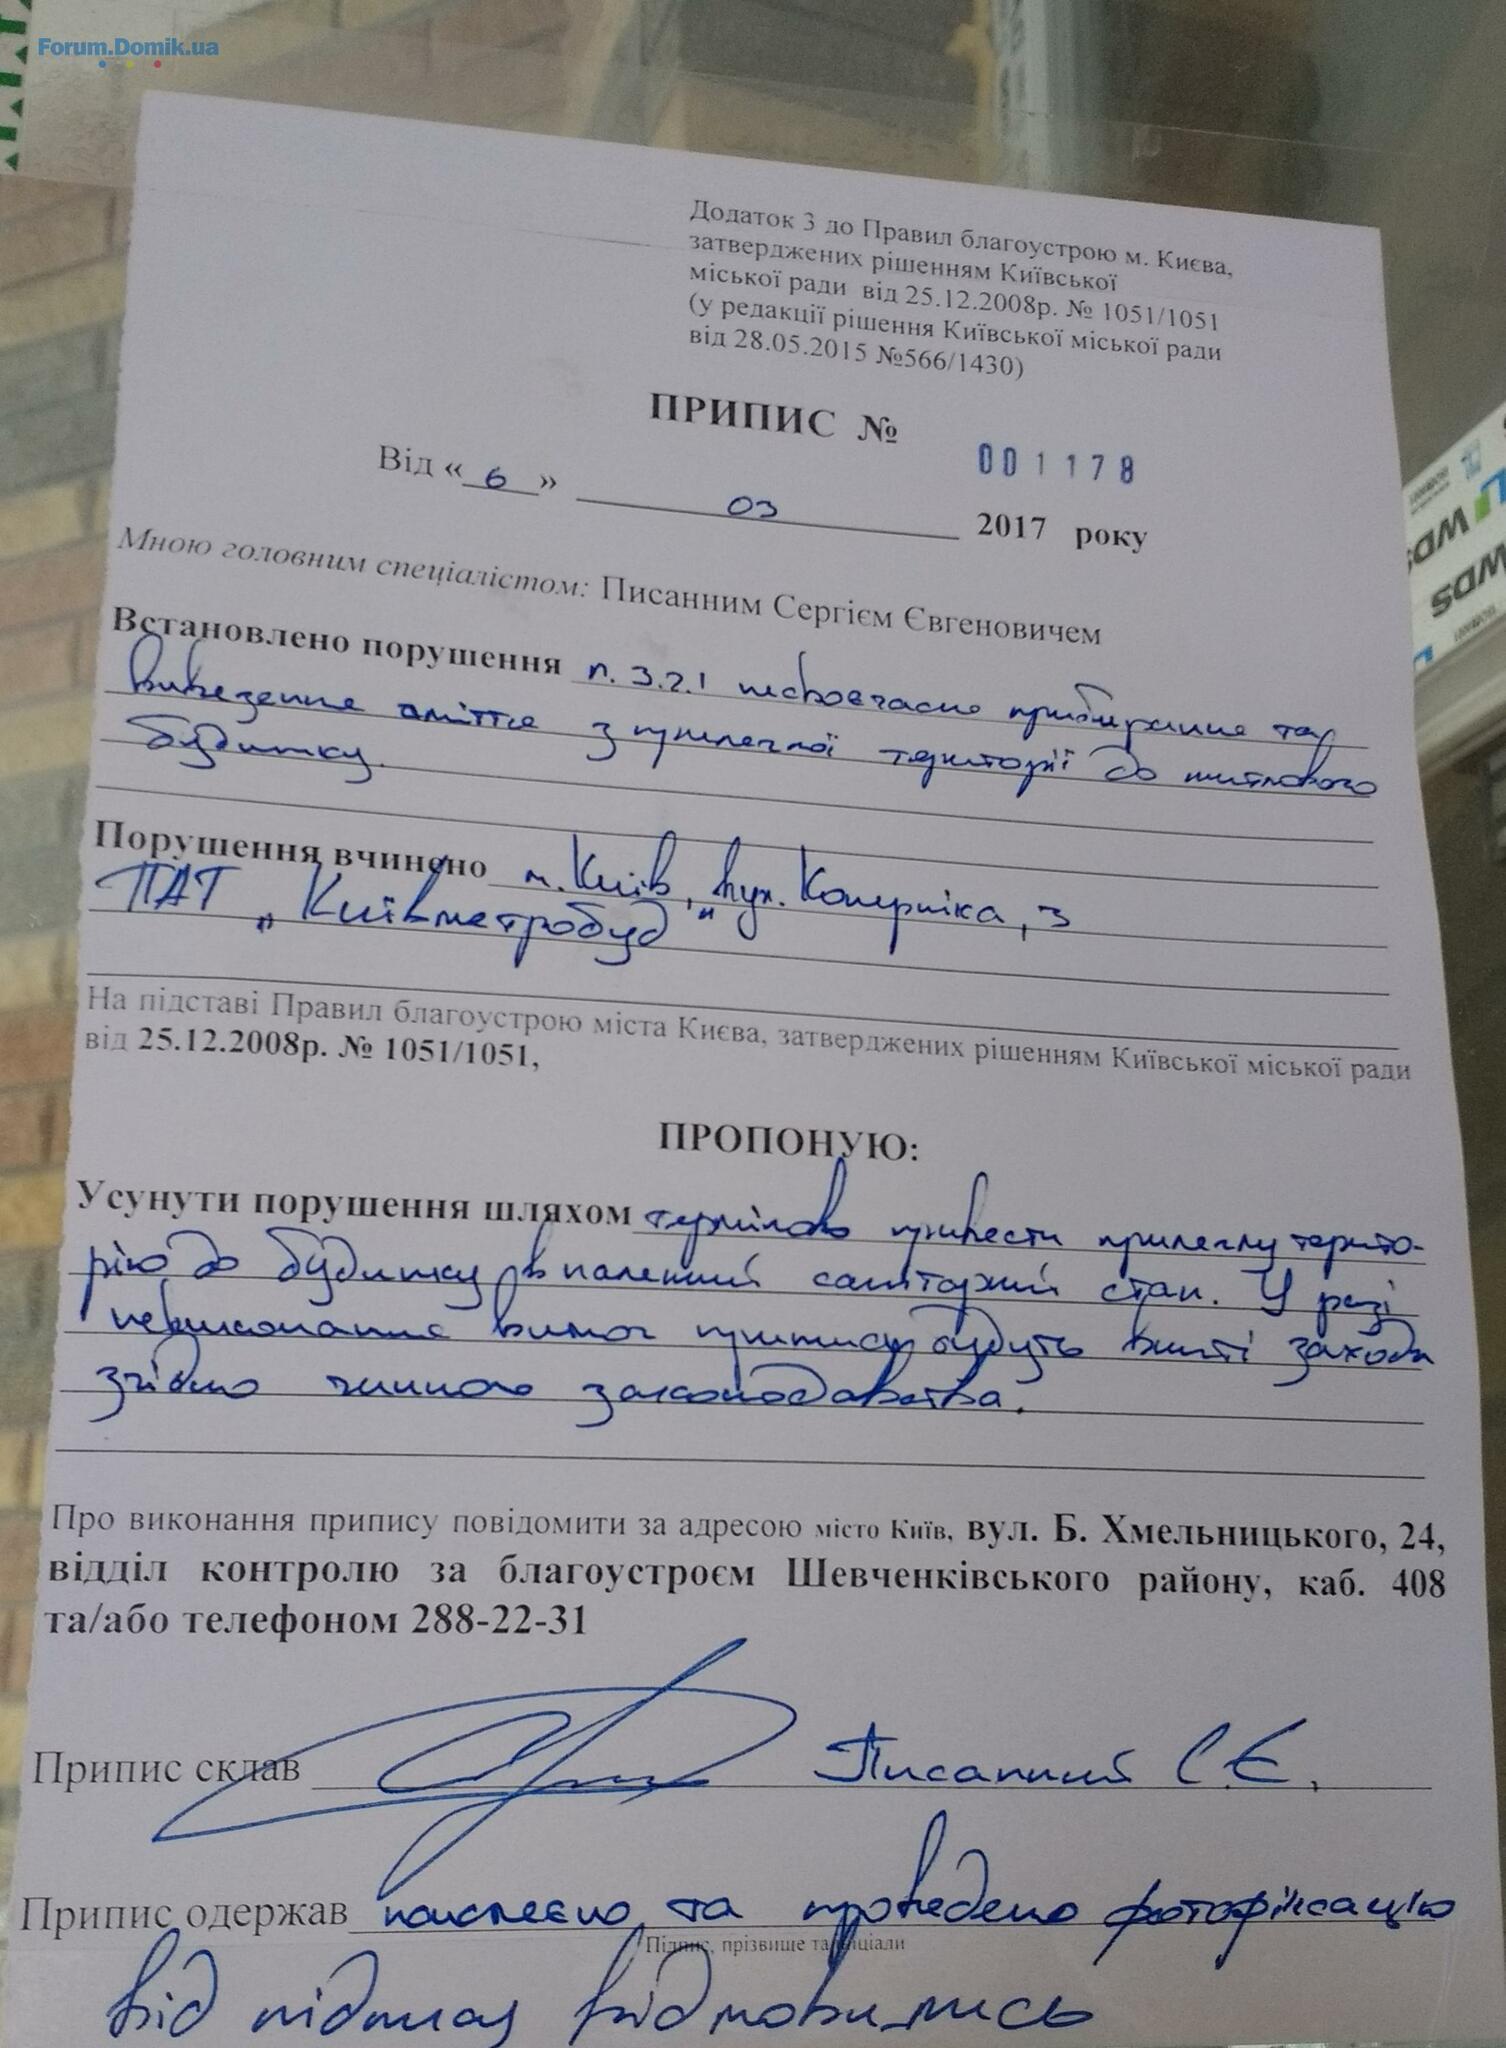 Forum.Domik.ua
Додаток 3 до Правил благоустрою м. Києва,
затверджених рішенням Київської
міської ради від 25.12.2008р. № 1051/1051
(у редакції рішення Київської міської ради
від 28.05.2015 №566/1430)
ПРИПИС № 001178
Від « 6 » 03 2017 року
Мною головним спеціалістом: Писанним Сергієм Євгеновичем
Встановлено порушення п. 3.2.1 несвоєчасне прибирання та
вивезення сміття з прилеглої території до житлового
будинку.
Порушення вчинено м. Київ, вул. Коперніка, 3
ПАТ „Київметробуд"
На підставі Правил благоустрою міста Києва, затверджених рішенням Київської міської ради
від 25.12.2008р. № 1051/1051,
ПРОПОНУЮ:
Усунути порушення шляхом терміново привести прилеглу терито-
рію до будинку в належний санітарний стан. У разі
невиконання вимог припису будуть вжиті заходи
згідно чинного законодавства.
Про виконання припису повідомити за адресою місто Київ, вул. Б. Хмельницького, 24,
відділ контролю за благоустроєм Шевченківського району, каб. 408
та/або телефоном 288-22-31
Припис склав Писанний С.Є.
Припис одержав наклеєно та проведено фотофіксацію
Підпис, прізвище та ініціали
від підпису відмовились
WDS
WDS